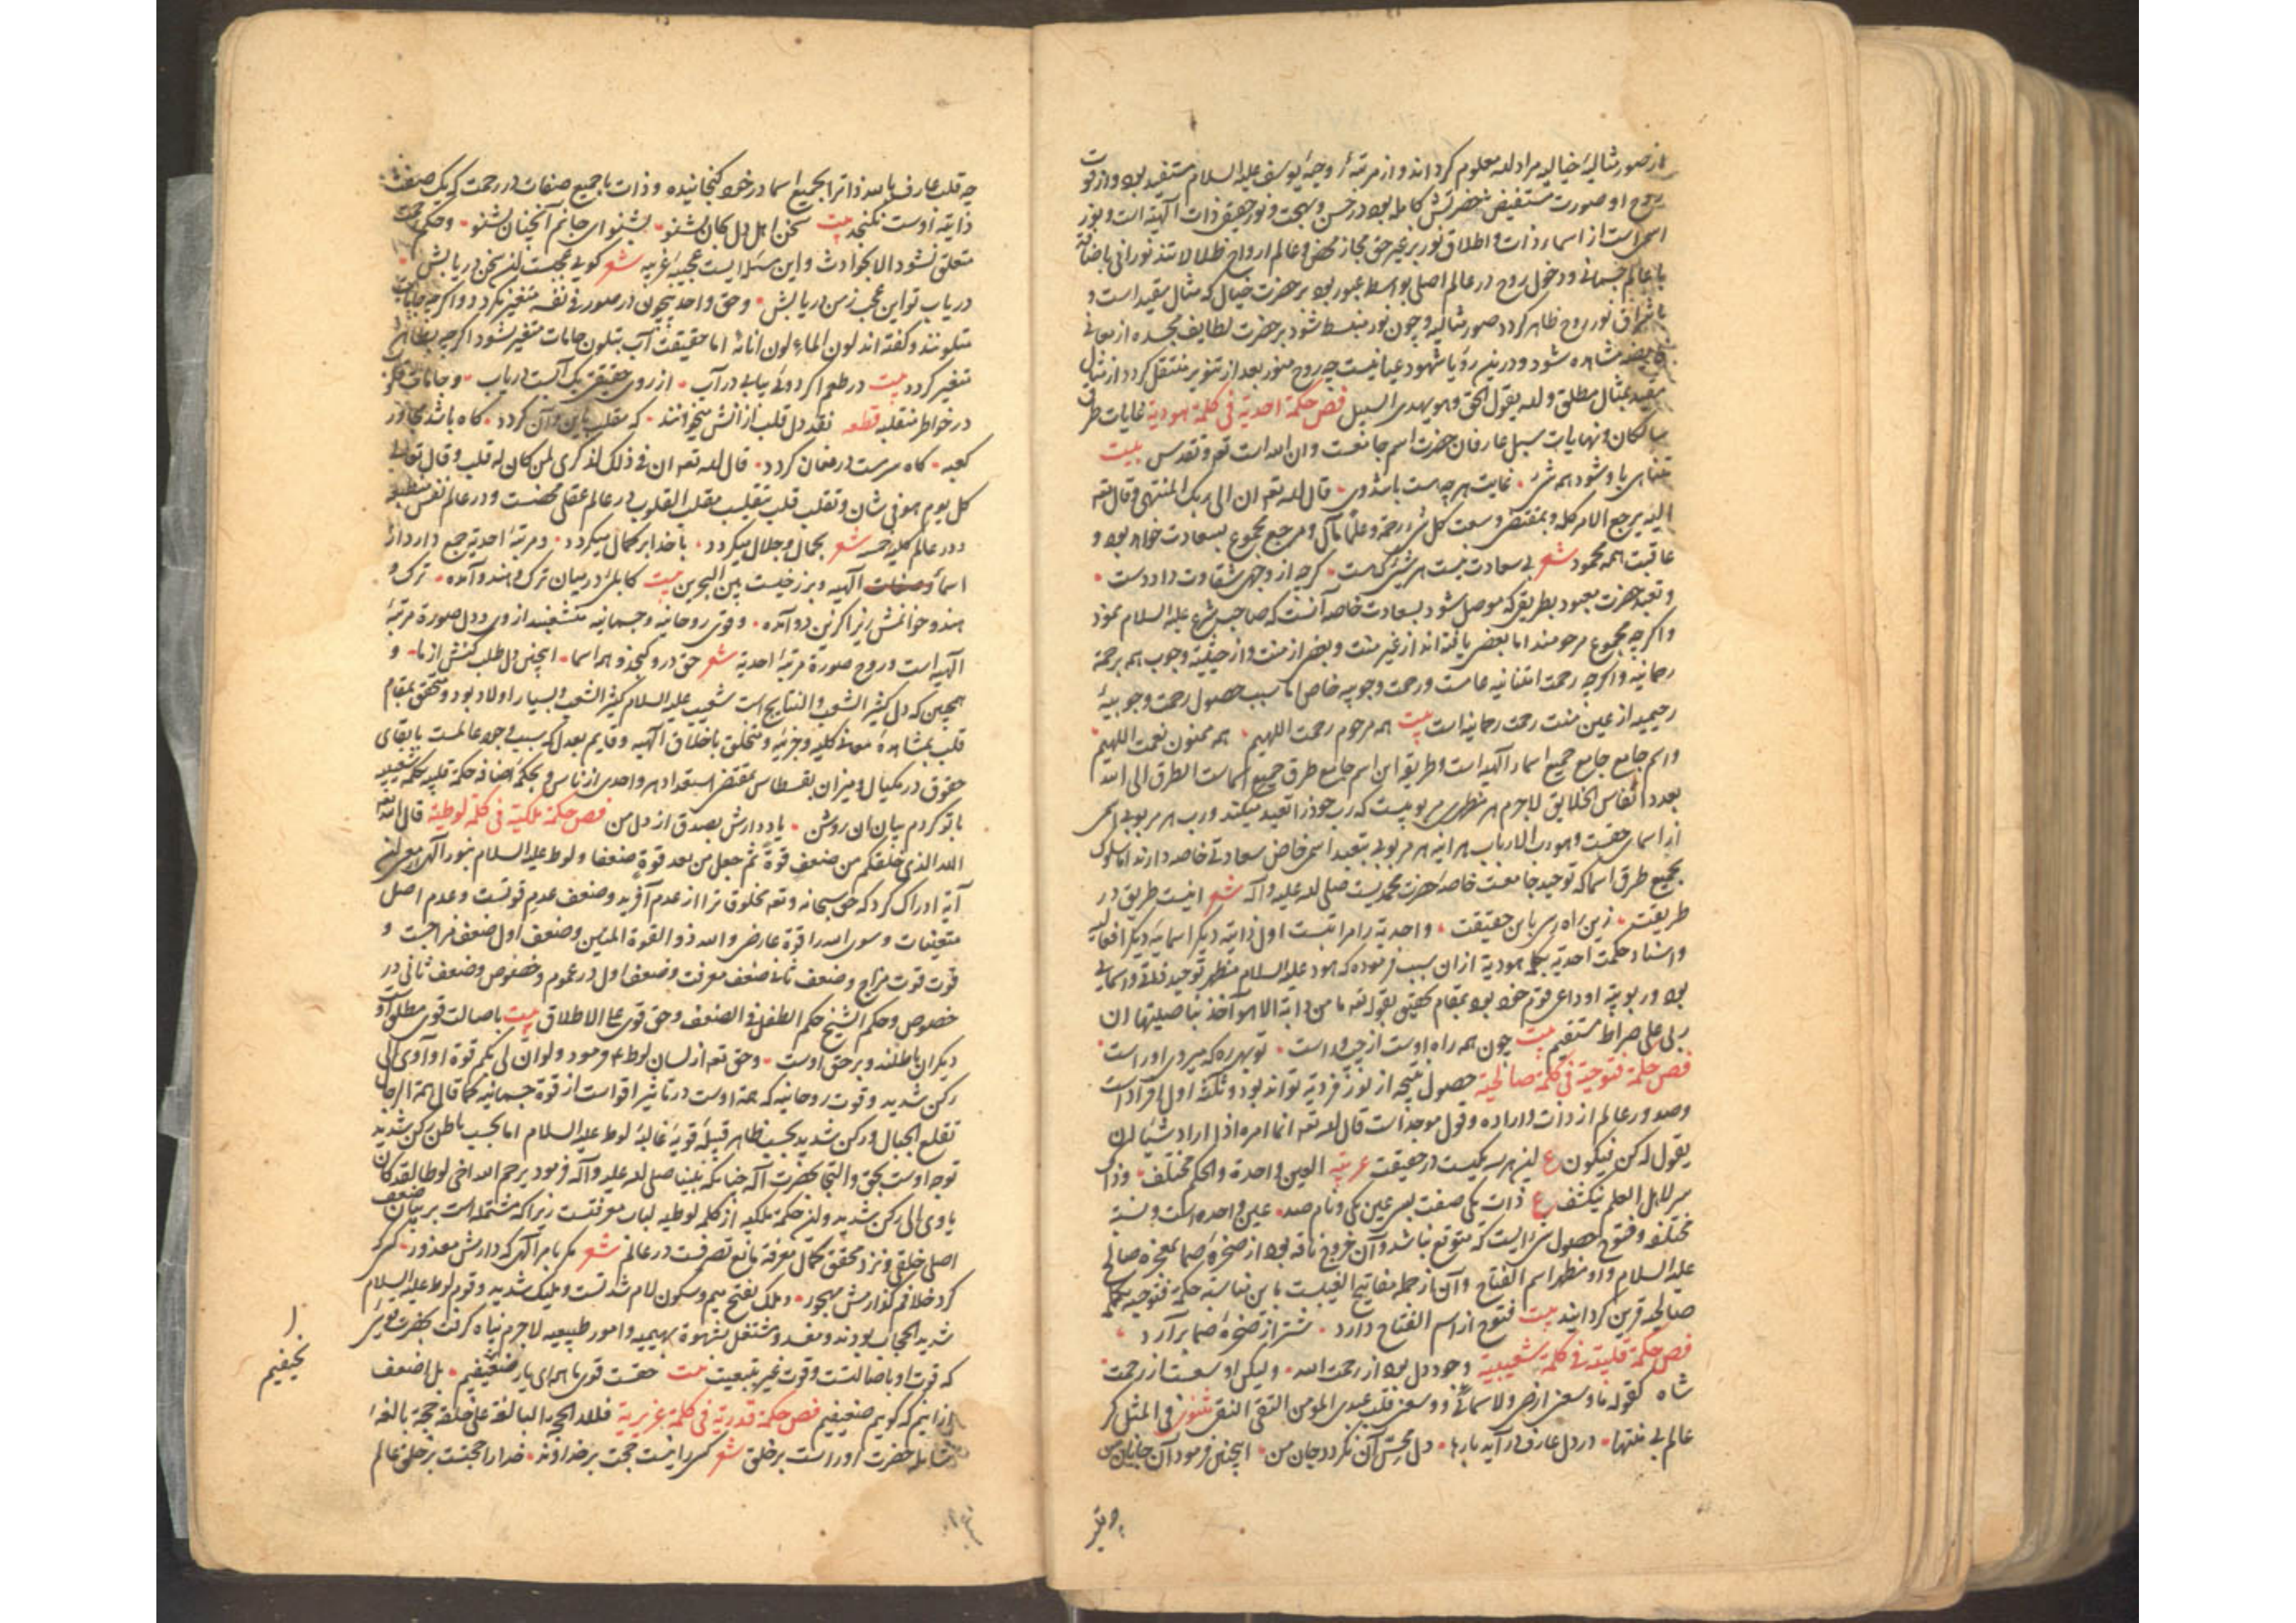 از صور مثالیه خیالیه مراد الله معلوم کرداند و از مرتبهٔ روحیه یوسف علیه السلام مستفید بود و از قوت
روح او صورت مستفیض خضرتش کامله بود در حسن و بهجت و نور حقیقی ذات الهیه است و نور
اسمی است از اسماء ذات و اطلاق نور بر غیر حق مجاز محض و عالم ارواح ظلالاتند نورانی باضافة
با عالم جسمانی و دخول روح در عالم اصلی بواسطه عبور بود بر حضرت خیال که مثال مقید است و
باشراق نور روح ظاهر کردد صور مثالیه و چون نور منبسط شود بر حضرت لطایف مجسده از معانی
مشاهده شود و درین رؤیا شهود عیانیست چه روح منور بعد از تنویر منتقل کردد از مثال
مقید بمثال مطلق و الله یقول الحق و هو یهدی السبیل فص حکمة احدیة فی کلمة هودیة غایات طرق
سالکان و نهایات سبل عارفان حضرت اسم جامعست و ان الله است تعه و تقدس بیت
متناهی باو شود همه شی غایت هر چه هست باشد وی قال الله تعه ان الی ربک المنتهی و قال تعه
الیه یرجع الامر کله و بمقتضی وسعت کل شیء رحمة و علما مآل و مرجع مجموع بسعادت خواهد بود و
عاقبت همه محمود شعر بی سعادت نیست هر شیئی که هست کرچه از وجهی شقاوت داد دست
و تعبد حضرت معبود بطریقی که موصل شود بسعادت خاصه آنست که صاحب شرع علیه السلام نمود
و اکرچه مجموع مرحومند اما بعضی یافته اند از غیر منت و بعضی از منت و از حیثیة وجوب هم برحمة
رحمانیه و اکرچه رحمت امتنانیه عامست و رحمت وجوبیه خاص اما سبب حصول رحمت وجوبیهٔ
رحیمیه از عین منت رحمت رحمانیه است بیت همه مرحوم رحمت اللهیم همه ممنون نعمت اللهیم
و اسم جامع جامع جمیع اسماء الهیه است و طریق این اسم جامع طرق جمیع اسماست الطرق الی الله
بعدد انفاس الخلایق لاجرم هر مظهری مربوبیست که رب خود را تعبد میکند و رب هر مربوبی اسمی
از اسمای حقست و هو رب الارباب هر آینه هر مربوبی بتعبد اسمی خاص سعادتی خاصه دارند اما سلوک
بجمیع طرق اسما که توحید جامعست خاصهٔ حضرت محمدیست صلی الله علیه و آله شعر اینست طریق در
طریقت زین راه رسی باین حقیقت و احدیة را مراتبست اول ذاتیه دیکر اسمائیه دیکر افعالیه
و اسناد حکمت احدیه بکلمهٔ هودیة از ان سبب فرموده که هود علیه السلام مظهر توحید ذاتی و اسمائی
بود و ربوبیه او داعی قوم خود بود بمقام تحقیق بقوله تعه ما من دابة الا هو آخذ بناصیتها ان
ربی علی صراط مستقیم بیت چون همه راه اوست از چپ و راست تو بهر ره که میروی او راست
فص حکمة فتوحیة فی کلمة صالحیة حصول نتیجه از نور فردیة تواند بود و ثلثه اول افراد است
و صدور عالم از ذات و اراده و قول موجد است قال الله تعه انما امره اذا اراد شیئا ان
یقول له کن فیکون ع این هر سه یکیست در حقیقت عربیه العین واحدة و الحکم مختلف و ذاک
سر لاهل العلم ینکشف ع ذات یکی صفت بسی عین یکی و نام صد عین واحده است و نسبه
مختلفه و فتوح حصول شی ایست که متوقع نباشد و آن خروج ناقه بود از صخرهٔ صما بمعجزه صالح
علیه السلام و او مظهر اسم الفتاح و آن از جمله مفاتیح الغیبست باین مناسبة حکمة فتوحیه بکلمهٔ
صالحیه قرین کردانید بیت فتوح از اسم الفتاح دارد شتر از صخرهٔ صما برآرد
فص حکمة قلبیة فی کلمة شعیبیة وجود دل بود از رحمت الله ولیکن اوسعست از رحمت
شاه کقوله ما وسعنی ارضی و لا سمائی و وسعنی قلب عبدی المومن التقی النقی مثنوی فی المثل کر
عالم بی منتها در دل عارف درآید بارها دل محس آن نکردد جان من اینچنین فرمود آن جانان من
چه قلب عارف بالله ذاترا بجمیع اسما در خود کنجانیده و ذات با جمیع صفات در رحمت که یک صفت
ذاتیه اوست نکنجد بیت سخن اهل دل بجان بشنو بشنو ای جانم آنچنان بشنو و حکم رحمت
متعلق نشود الا بحوادث و این مسئلهٔ ایست عجیبهٔ غریبه شعر کوئی عجبست این سخن دریابش
دریاب تو این عجب ز من دریابش و حق واحد بیچون در صور فی نفسه متغیر نکردد و اکرچه جامات
متلونند و کفته اند لون الماء لون انائه اما حقیقت آب بتلون جامات متغیر نشود اکرچه بظاهر
متغیر کردد بیت در طعم اکر دوئی بیابی در آب از روی حقیقتش یک آبست دریاب و جامات
در خواطر منقلبه قطعه نقد دل قلب از آنش میخوانند که مقلب باین و آن کردد کاه باشد مجاور
کعبه کاه سرمست در مغان کردد قال الله تعه ان فی ذلک لذکری لمن کان له قلب و قال تعالی
کل یوم هو فی شان و تقلب قلب بتقلیب مقلب القلوب در عالم عقلی محضست و در عالم نفس منطبعه
و در عالم کلیه خمسه شعر بجمال و جلال میکردد با خدا بر کمال میکردد و مرتبهٔ احدیة جمع دارد از
اسماء و صفات الهیه و برزخیست بین البحرین بیت کابلی در میان ترک و هندو آمده ترک و
هندو خوانمش زیرا کزین دو آمده و قوی روحانیه و جسمانیه منشعبند از وی و دل صورة مرتبهٔ
الهیه است و روح صورة مرتبهٔ احدیة شعر حق درو کنجد و همه اسما اینچنین دل طلب کنش از ما و
همچنین که دل کثیر الشعب و النتایج است شعیب علیه السلام کثیر الشعب و بسیار اولاد بود و متحقق بمقام
قلب بمشاهدهٔ معانی کلیه و جزئیه و متخلق باخلاق الهیه و قایم بعدل که سبب وجود عالمست بایفای
حقوق در مکیال و میزان بقسطاس بمقتضی استعداد هر واحدی از ناس و بحکم اضافه حکمة قلبیه بکلمهٔ شعیبیه
با تو کردم بیان ان روشن یاد دارش بصدق از دل من فص حکمة ملکیة فی کلمة لوطیة قال الله تعه
الله الذی خلقکم من ضعف قوة ثم جعل من بعد قوة ضعفا و لوط علیه السلام بنور الهی معنی این
آیة ادراک کرد که حق سبحانه و تعه مخلوقاترا از عدم آفرید و ضعف عدم قوتست و عدم اصل
متعینات و سوی الله را قوة عارضی و الله ذو القوة المتین و ضعف اول ضعف مزاجست و
قوت قوت مزاج و ضعف ثانی ضعف معرفت و ضعف اول در عموم و خصوص و ضعف ثانی در
خصوص و حکم الشیخ حکم الطفل فی الضعف و حق قوی علی الاطلاق بیت باصالت قوی مطلق اوست
دیکران باطلند و بر حق اوست و حق تعه از لسان لوط ع فرمود و لو ان لی بکم قوة او آوی الی
رکن شدید و قوت روحانیه که همة اوست در تاثیر اقواست از قوة جسمانیه کما قال همة الرجال
تقلع الجبال و رکن شدید بحسب ظاهر قبیلهٔ قویهٔ غالبهٔ لوط علیه السلام اما بحسب باطن رکن شدید
توجه اوست بحق و التجا بحضرت اله چنانکه نبینا صلی الله علیه و آله فرمود یرحم الله اخی لوطا لقد کان
یاوی الی رکن شدید و این حکمة ملکیه از کلمه لوطیه لباب معرفتست زیرا که مشتمله است بر بیان ضعف
اصلی خلقی و نزد محقق کمال معرفة مانع تصرفست در عالم شعر مکر بامر الهی که دارش معذور کسی که
کرد خلافم کذارمش مهجور و ملک بفتح میم و سکون لام شدتست و ملیک شدید و قوم لوط علیه السلام
شدید الحجاب بودند و مفسد و مشتغل بشهوة بهیمیه و امور طبیعیه لاجرم پناه کرفت بحضرت قوی
که قوت او باصالتست و قوت غیر بتبعیت بیت حقست قوی ما همه ای یار ضعیفیم بل اضعف
از آنیم که کوییم ضعیفیم فص حکمة قدریة فی کلمة عزیریة فلله الحجة البالغة علی خلقه حجة بالغهٔ
شامله حضرت او راست بر خلق شعر کسی را نیست حجت بر خداوند خدا را حجتست بر خلق عالم
نحیفیم